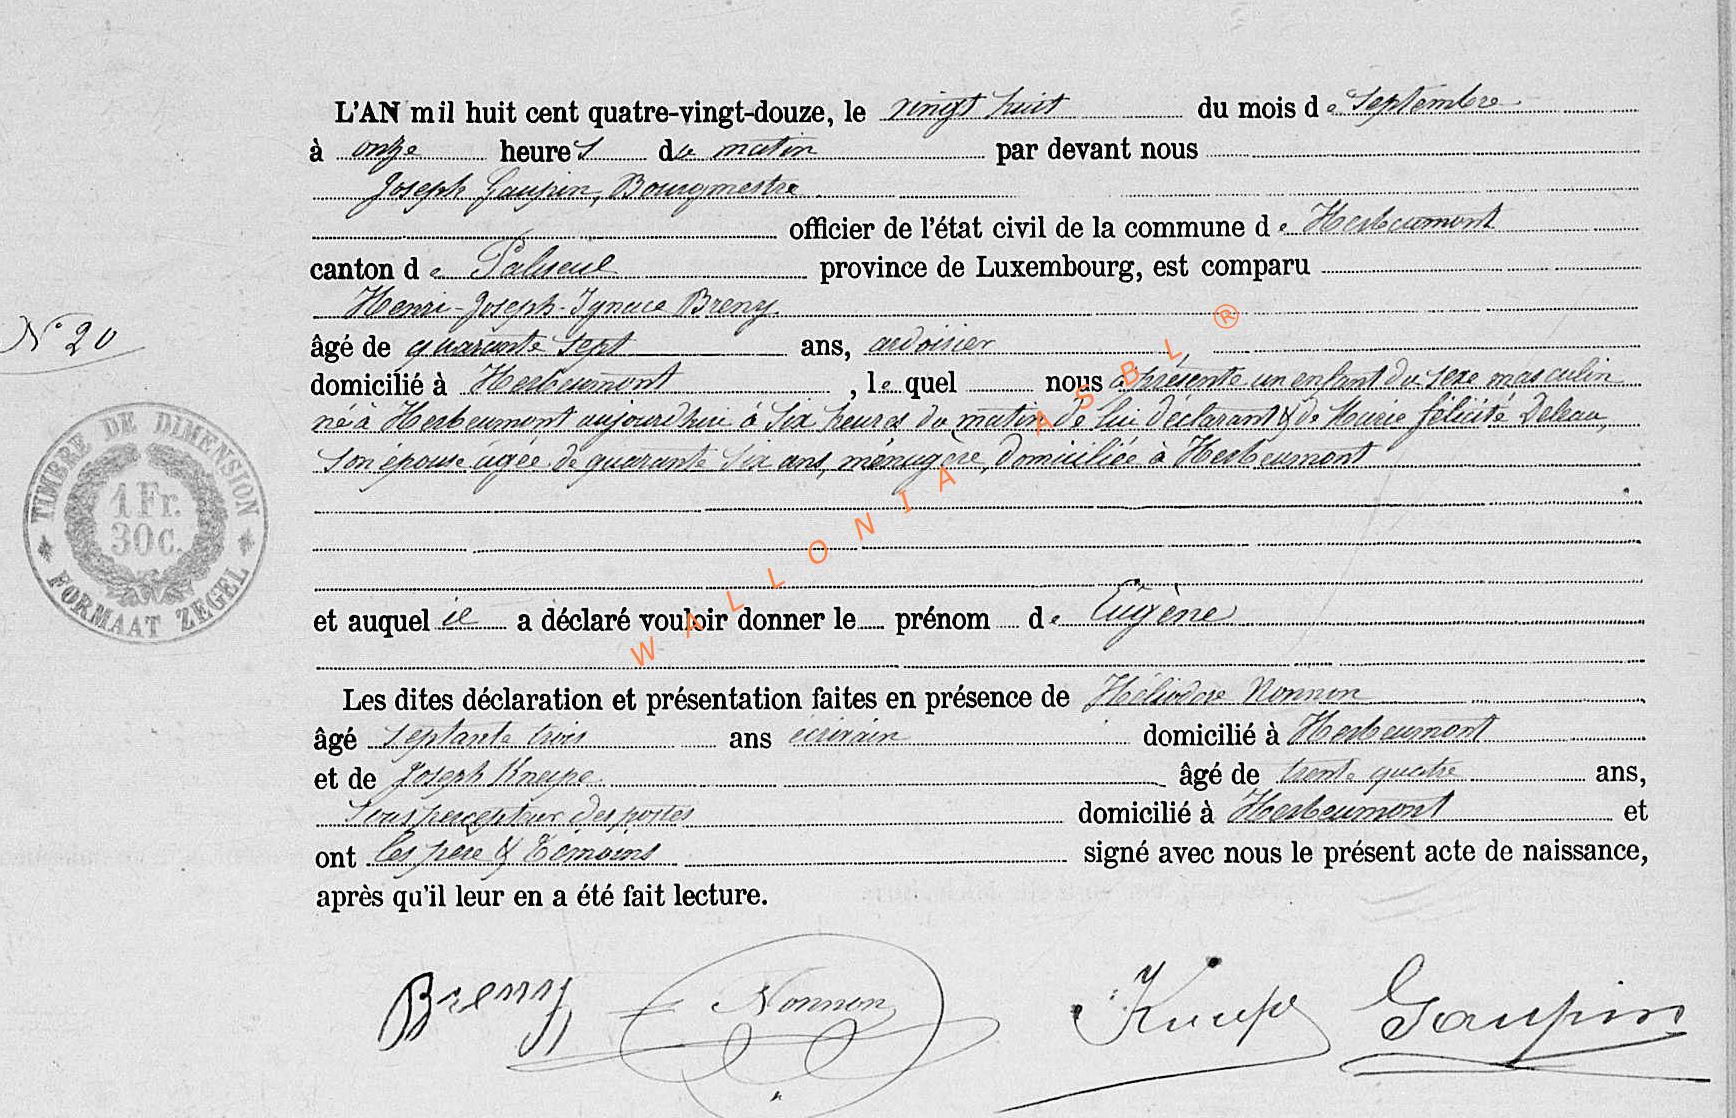 L'AN mil huit cent quatre-vingt-douze, le vingt huit du mois de Septembre
à onze heures du matin par devant nous
Joseph Gaupin, Bourgmestre
officier de l'état civil de la commune de Herbeumont
canton de Paliseul province de Luxembourg, est comparu
Henri-Joseph-Ignace Breny
N° 20
âgé de quarante sept ans, ardoisier
domicilié à Herbeumont, lequel nous a présenté un enfant du sexe masculin
né à Herbeumont aujourd'hui à six heures du matin de lui déclarant & de Marie félicité Deleau,
son épouse âgée de quarante six ans, ménagère, domiciliée à Herbeumont
TIMBRE DE DIMENSION
1 Fr.
30 c.
FORMAAT ZEGEL
et auquel il a déclaré vouloir donner le prénom de Eugène
Les dites déclaration et présentation faites en présence de Héliodore Nonnon
âgé septante trois ans écrivain domicilié à Herbeumont
et de Joseph Kneipe âgé de trente quatre ans,
Sous percepteur des postes domicilié à Herbeumont et
ont les père & témoins signé avec nous le présent acte de naissance,
après qu'il leur en a été fait lecture.
Breny Nonnon Kneipe Gaupin
WALLONIA ASBL ®